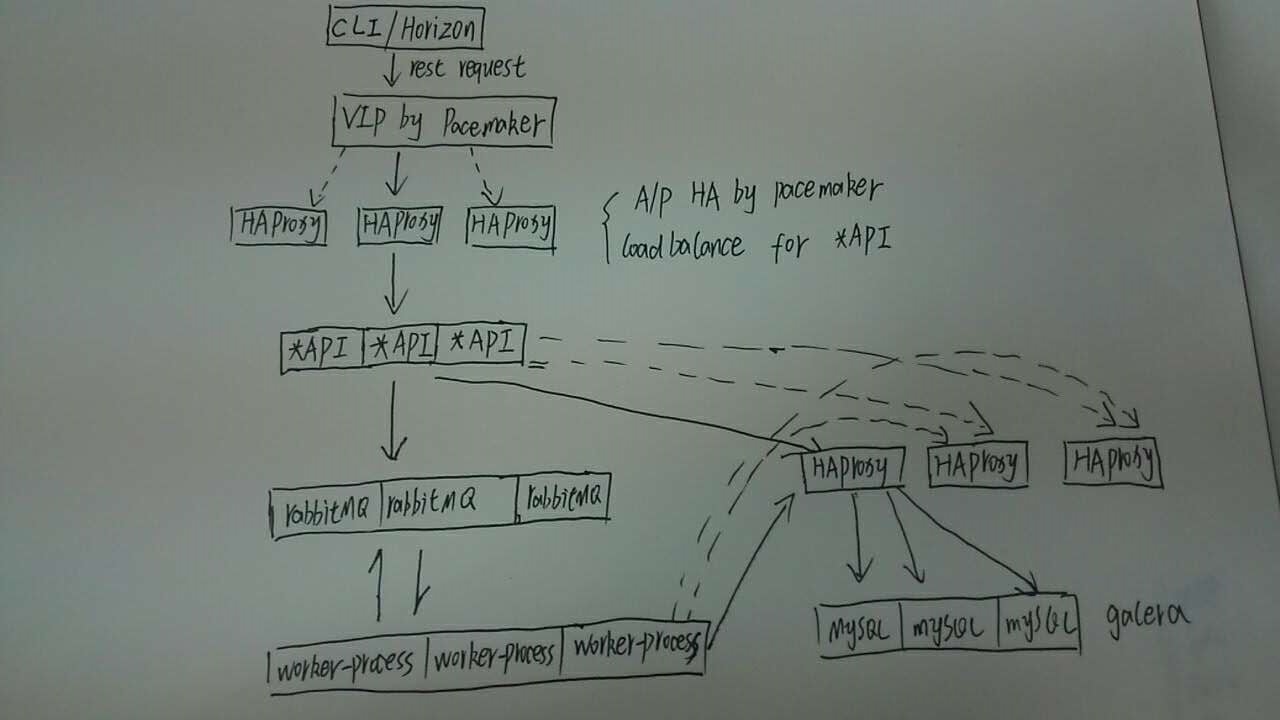 CLI/Horizon
rest request
VIP by Pacemaker
HAProxy HAProxy HAProxy
A/P HA by pacemaker
loadbalance for *API
*API *API *API
HAProxy HAProxy HAProxy
rabbitMQ rabbitMQ rabbitMQ
MySQL mySQL mySQL galera
worker-process worker-process worker-process